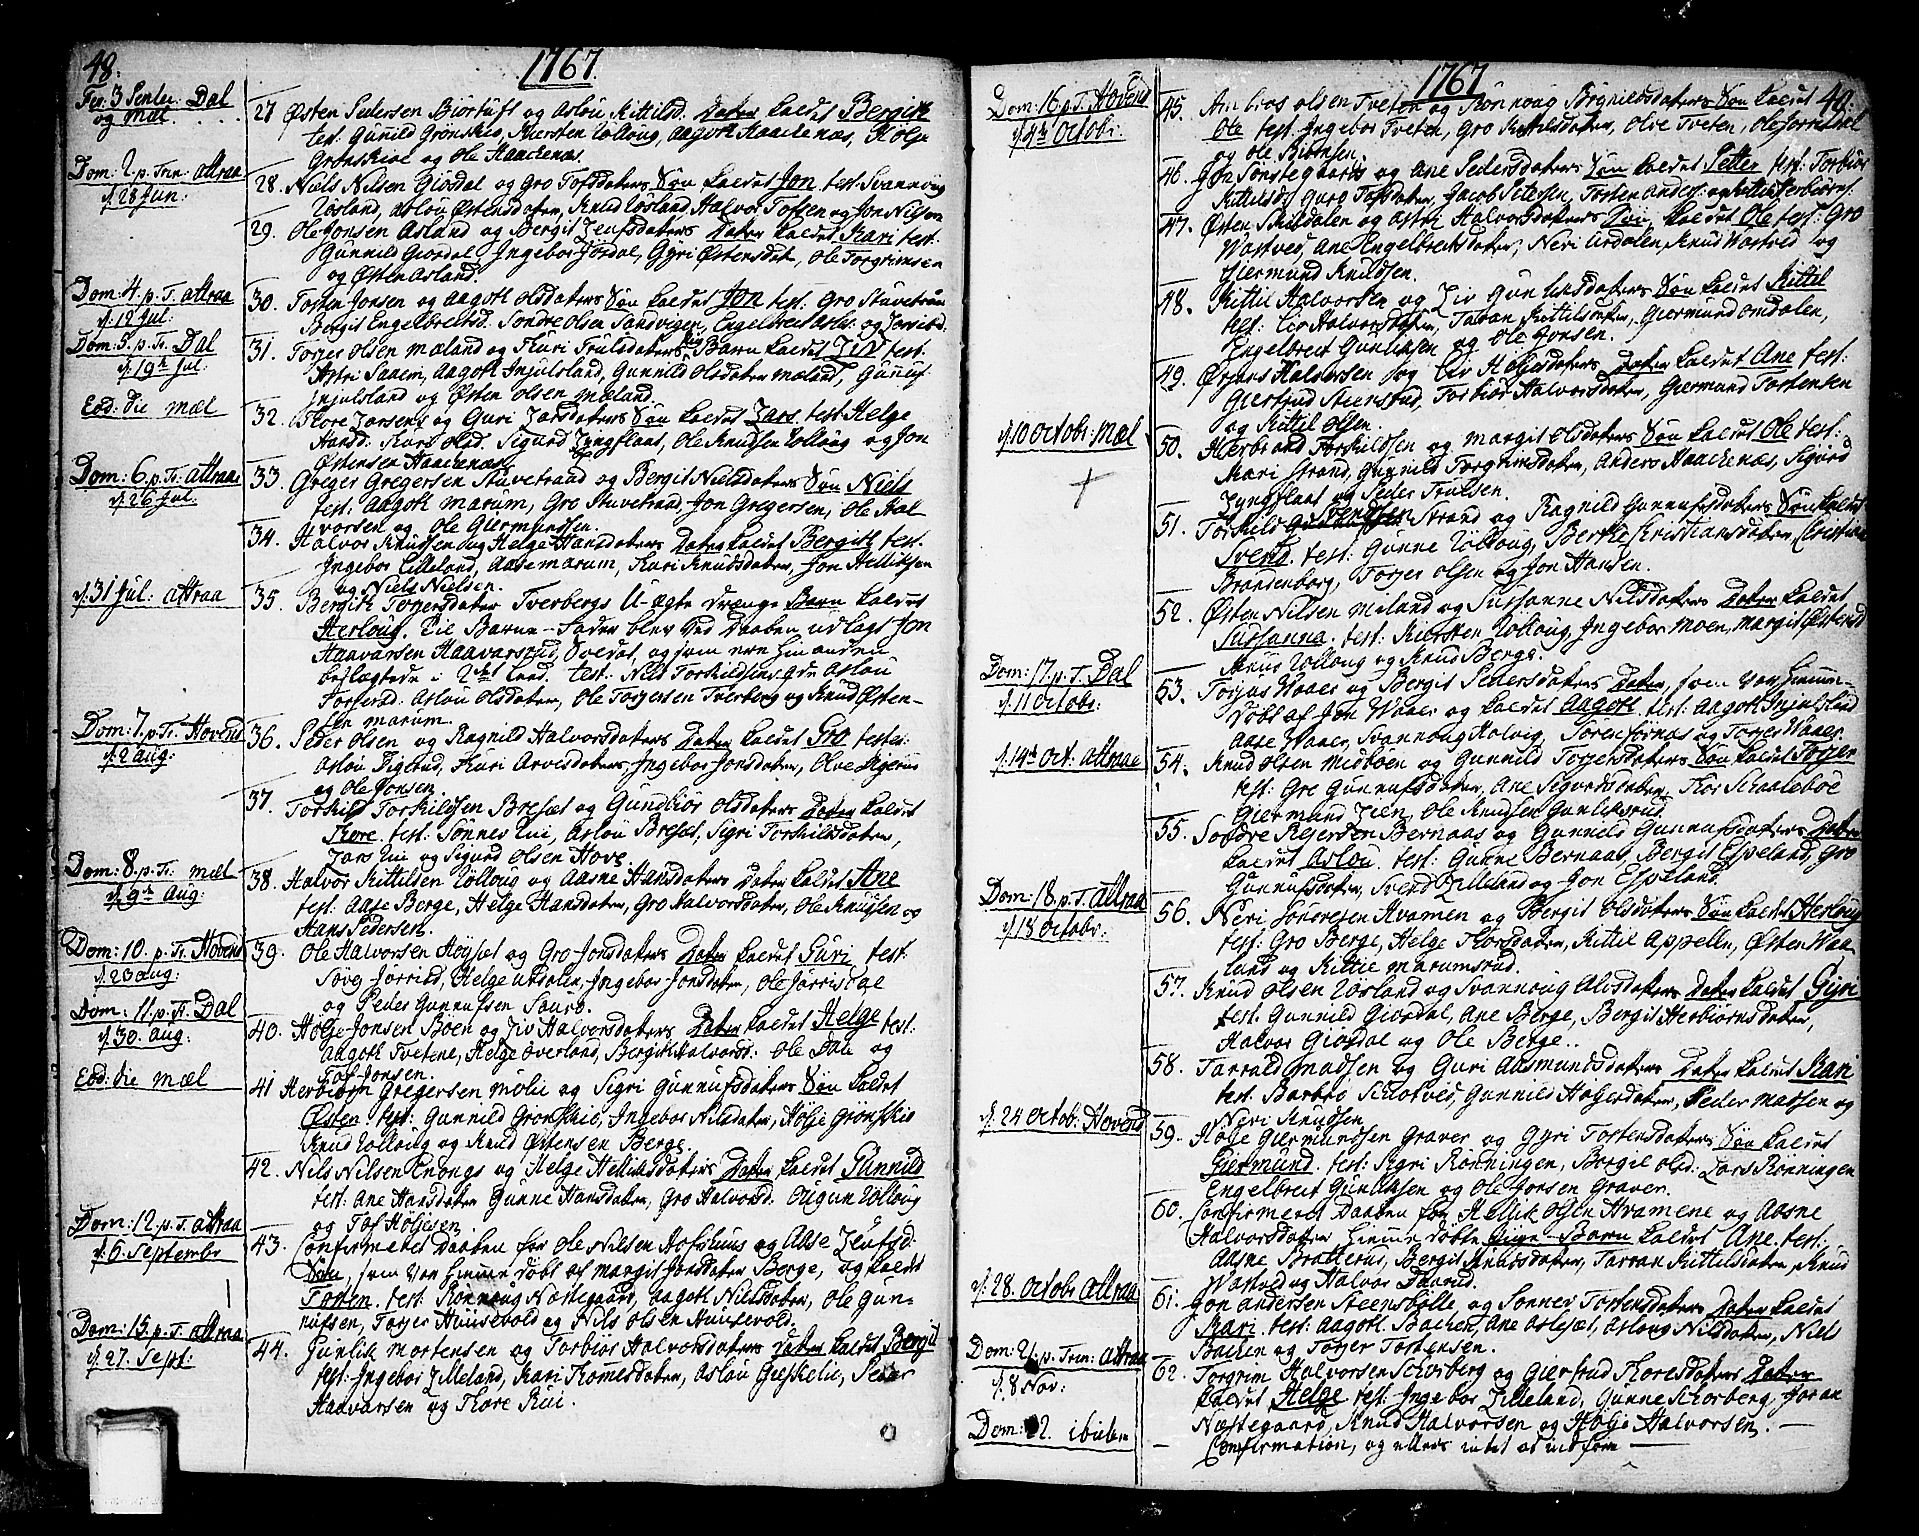 48.
1767.
Fer. 3 Pentec. Dal
og Mæl
27 Østen Pedersen Biørtuft og Aslou Kittilsd. Dater kaldet Bergith
test: Gunild Grønskie, Kiersten Lolloug, Aagoth Haackenæs, Holje
Grønskie og Ole Haackenæs.
Dom: 2. p. Trin: Attraa
d. 28 Jun:
28. Niels Nilsen Giøsdal og Gro Tofsdaters Søn kaldet Jon test: Svannoug
Løsland, Aslou Østensdater, Knud Løsland, Halvor Tofsen og Jon Nilsen
29. Ole Jonsen Asland og Bergit Leufsdaters Dater kaldet Kari test:
Gunnild Giordal, Ingebor Jordal, Gyri Østensdat, Ole Torgrimsen
og Østen Asland.
Dom: 4. p. T. Attraa
d. 12 Jul:
30. Torsten Jonsen og Aagoth Olsdaters Søn kaldet Jon test: Gro Stuvetraan
Bergit Engelbreitsd. Sondre Olsen Sandvigen, Engelbreit Asl: og
Dom: 5. p. Tr. Dal
d. 19de Jul:
31. Torjer Olsen Mæland og Kari Trulsdaters Barn kaldet Liv test:
Astri Saaem, Aagoth Injulsland, Gunnild Olsdater Mæland, Gunnuf
Injulsland og Østen Olsen Mæland.
Eod: die Mæl
32. Thore Larsens og Guri Larsdaters Søn kaldet Lars test. Helge
Hansd: Kari Olsd. Sigurd Lyngflaat, Ole Knudsen Lolloug og Jon
Østensen Haackenæs.
Dom: 6. p. Tr. Attraa
d. 26 Jul.
33. Greger Gregersen Stuvetraad og Bergit Nielsdaters Søn Niels
test: Aagoth Marum, Gro Stuvetraad, Jon Gregersen, Ole Hal
vorsen og Ole Giermundsen.
34. Halvor Knudsen og Helge Hansdaters Dater kaldet Bergith test.
Ingebor Lilleland, Aase Marum, Kari Knudsdater, Jon Hellicksen
og Niels Nielsen.
d: 31 Jul: Attraa
35. Bergith Torjersdater Tverbergs U-ægte Drænge Barn kaldet
Herloug. Til Barne-Fader blev ved Daaben udlagt Jon
Haavarsen Haavarsrud, og som ere hinanden
beslægtede i 2det Leed. test: Niels Torkildsens Qde Aslou
Aslou Olsdater, Ole Torjersen Tverberg og Knud Østen-
sen Marum.
Dom: 7. p. Tr. Hovend
d. 2 Aug:
36. Peder Olsen og Ragnild Halvorsdaters Dater kaldet Gro testes:
Aslou Digerud, Kari Arvesdater, Ingebor Jonsdater, Olve Digerud
og Ole Jonsen.
37. Torkild Torkildsen Bresæt og Gundbiør Olsdaters Dater kaldet
Thore. test: Sønnev Lui, Aslou Bresæt, Sigri Torkilsdater,
Lars Lui og Sigurd Olsen Hove.
Dom: 8. p. Tr. Mæl
d. 9de Aug:
38. Halvor Kittilsen Lolloug og Aasne Hansdaters Dater kaldet Ane
test: Aase Berge, Helge Hansdater, Gro Halvorsdater, Ole Knudsen og
Hans Pedersen.
Dom: 10. p. Tr. Hovend
d. 23 Aug:
39. Ole Halvorsen Høysæt og Gro Jonsdaters Dater kaldet Guri test:
Søvg Jørrisd, Helge Urdalen, Ingebor Jonsdater, Ole Jørrisdal
og Peder Gunnufsen Sauro.
Dom: 11. p. Tr. Dal
d. 30. Aug:
40. Holje Jonsen Boen og Liv Halvorsdaters Dater kaldet Helge test:
Aagoth Tvetene, Helge Overland, Bergith Halvorsd: Ole Dale og
Tof Jonsen.
Eod: die Mæl
41 Herbiørn Gregersen Mølie og Sigri Gunnufsdaters Søn kaldet
Østen. test: Gunnild Grønskie, Ingebor Nilsdater, Holje Grønskie
Knud Lolloug og Knud Østensen Berge.
42. Nils Nilsen Krongs og Helge Hellicksdaters Dater kaldet Gunnild
test: Ane Hansdater Gunne Hansdater, Gro Halvorsd. Ougun Lolloug
og Tof Holjesen.
Dom: 12. p. T. Attraa
d. 6 Septembr
43. Confirmeret Daaben for Ole Nilsen Hofshuus og Aase Leufsd:
Søn, som var hiemme døbt af Margit Jonsdater Berge, og kaldet
Torsten. test: Rønnoug Næstegaard, Aagoth Nielsdater, Ole Gun-
nufsen, Torjer Hunsevold og Nils Olsen Hunsevold.
Dom: 15. p. T. Attraa
d. 27. Sept:
44. Gunlik Mortensen og Torbiør Halvorsdaters Dater kaldet Bergit
test: Ingebor Lilleland, Kari Thomesdater, Aslou Gieskelie, Peder
Haavarsen og Thore Lui.
1767
49.
Dom: 16. p. T. Hovend
d. 4de Octobr:
45. Ambros Olsen Tveten og Rønnoug Bøgnildsdaters Søn kaldet
Ole test: Ingebor Tveten, Gro Kittilsdater, Olve Tveten, Ole Jørrisdal
og Ole Biørnsen.
46. Jon Sønstegaards og Ane Pedersdaters Søn kaldet Petter test: Torbiør
Kittilsd: Guro Tofsdater, Jacob Petersen, Torsten Anders: og Kittil Herbiørns:
47. Østen Skieldalen og Astri Halvorsdaters Søn kaldet Ole test: Gro
Wastved, Ane Engelbreitsdater, Neri Urdalen, Knud Wastved og
Giermund Knudsen.
48. Kittil Halvorsen og Liv Gunliksdaters Søn kaldet Kittil
test: Liv Halvorsdater, Taran Kittilsdater, Giermund Omdalen,
Engelbreit Gunliksen og Ole Jonsen.
49. Ørjans Halvorsen og Liv Holjesdaters Dater kaldet Ane test:
Giertrud Steenstad, Torbiør Halvorsdater, Giermund Torstensen
og Kittil Olsen.
d. 10 Octobr: Mæl
50. Herbrand Torkildsen og Margit Olsdaters Søn kaldet Ole test:
Mari Strand, Gunnild Torgrimsdater, Anders Haackenæs, Sigurd
Lyngflaat og Peder Trulsen.
51. Torkild Svendsen Strand og Ragnild Gunnufsdaters Søn kaldet
Svend. test: Gunne Lolloug, Berthe Christiansdater, Christian
Brandenborg, Torjer Olsen og Jon Hansen.
52. Østen Nilsen Miland og Sussanne Nilsdaters Dater kaldet
Sussanna. test: Kiersten Lolloug Ingebor Moen, Margit Østensd
Knud Lolloug og Knud Berge.
Dom: 17. p. T. Dal
d. 11 Octobr:
53. Torjus Waaer og Bergit Pedersdaters Dater, som var hiemme-
døbt af Jon Waaer og kaldet Aagoth test: Aagoth Injulsland
Aase Waaer, Svannoug Halvig, Søren Fornæs og Torjer Waaer.
d. 14de Oct. Attraa
54. Knud Olsen Midboen og Gunnild Torjersdaters Søn kaldet Torjer
test: Gro Gunnufsdater, Ane Sigurdsdater, Thor Schaaleboe
Giermund Lien, Ole Knudsen Gunliksrud.
55. Sondre Rejersen Bernaas og Gunnild Gunnufsdaters Dater
kaldet Aslou. test: Gunne Bernaas, Bergit Espeland, Gro
Gunnufsdater, Svend Lilleland og Jon Espeland.
Dom: 18. p. T. Attraa
d. 18 Octobr:
56. Neri Sønresen Kvamen og Bergit Olsdaters Søn kaldet Herloug
test: Gro Berge, Helge Thorsdater, Kittil Appelln, Østen Waa
lund og Kittil Marumsrud.
57. Knud Olsen Løsland og Svannoug Alisdaters Dater kaldet Gyri
test: Gunnild Giordal, Ane Berge, Bergit Herbiørnsdater,
Halvor Giordal og Ole Berge.
58. Tarrald Madsen og Guri Aasmundsdaters Dater kaldet Kari
test: Barbro Schotved, Gunnild Holjesdater, Peder Madsen og
Neri Knudsen.
d. 24 Octobr: Hovend
59. Holje Giermundsen Graver og Gyri Torstensdaters Søn kaldet
Giermund. test: Sigri Rønningen, Bergit Olsd: Lars Rønningen
Engelbreit Gunliksen og Ole Jonsen Graver.
60. Confirmeret Daaben for Hellik Olsen Kvamene og Aasne
Halvorsdaters hiemme døbte Pige-Barn kaldet Ane. test:
Aasne Bratterud, Bergit Knudsdater, Tarran Kittilsdater, Knud
Wastved og Halvor Daarud.
d. 28. Octobr. Attraa
61. Jon Andersen Steensbølle og Sønnev Torstensdaters Dater kaldet
Kari. test: Aagoth Bachen, Ane Aslesæt, Aslou Nilsdater, Niels
Bachen og Torjer Torstensen.
Dom: 21. p. Trin: Attraa
d. 8 Nov:
62. Torgrim Halvorsen Schorberg og Giertrud Thoresdaters Dater
kaldet Helge test: Ingebor Lilleland, Gunne Schorberg, Joran
Næstegaard, Knud Halvorsen og Holje Halvorsen.
Dom: 22. ibidem
Confirmation, og ellers intet at indføre